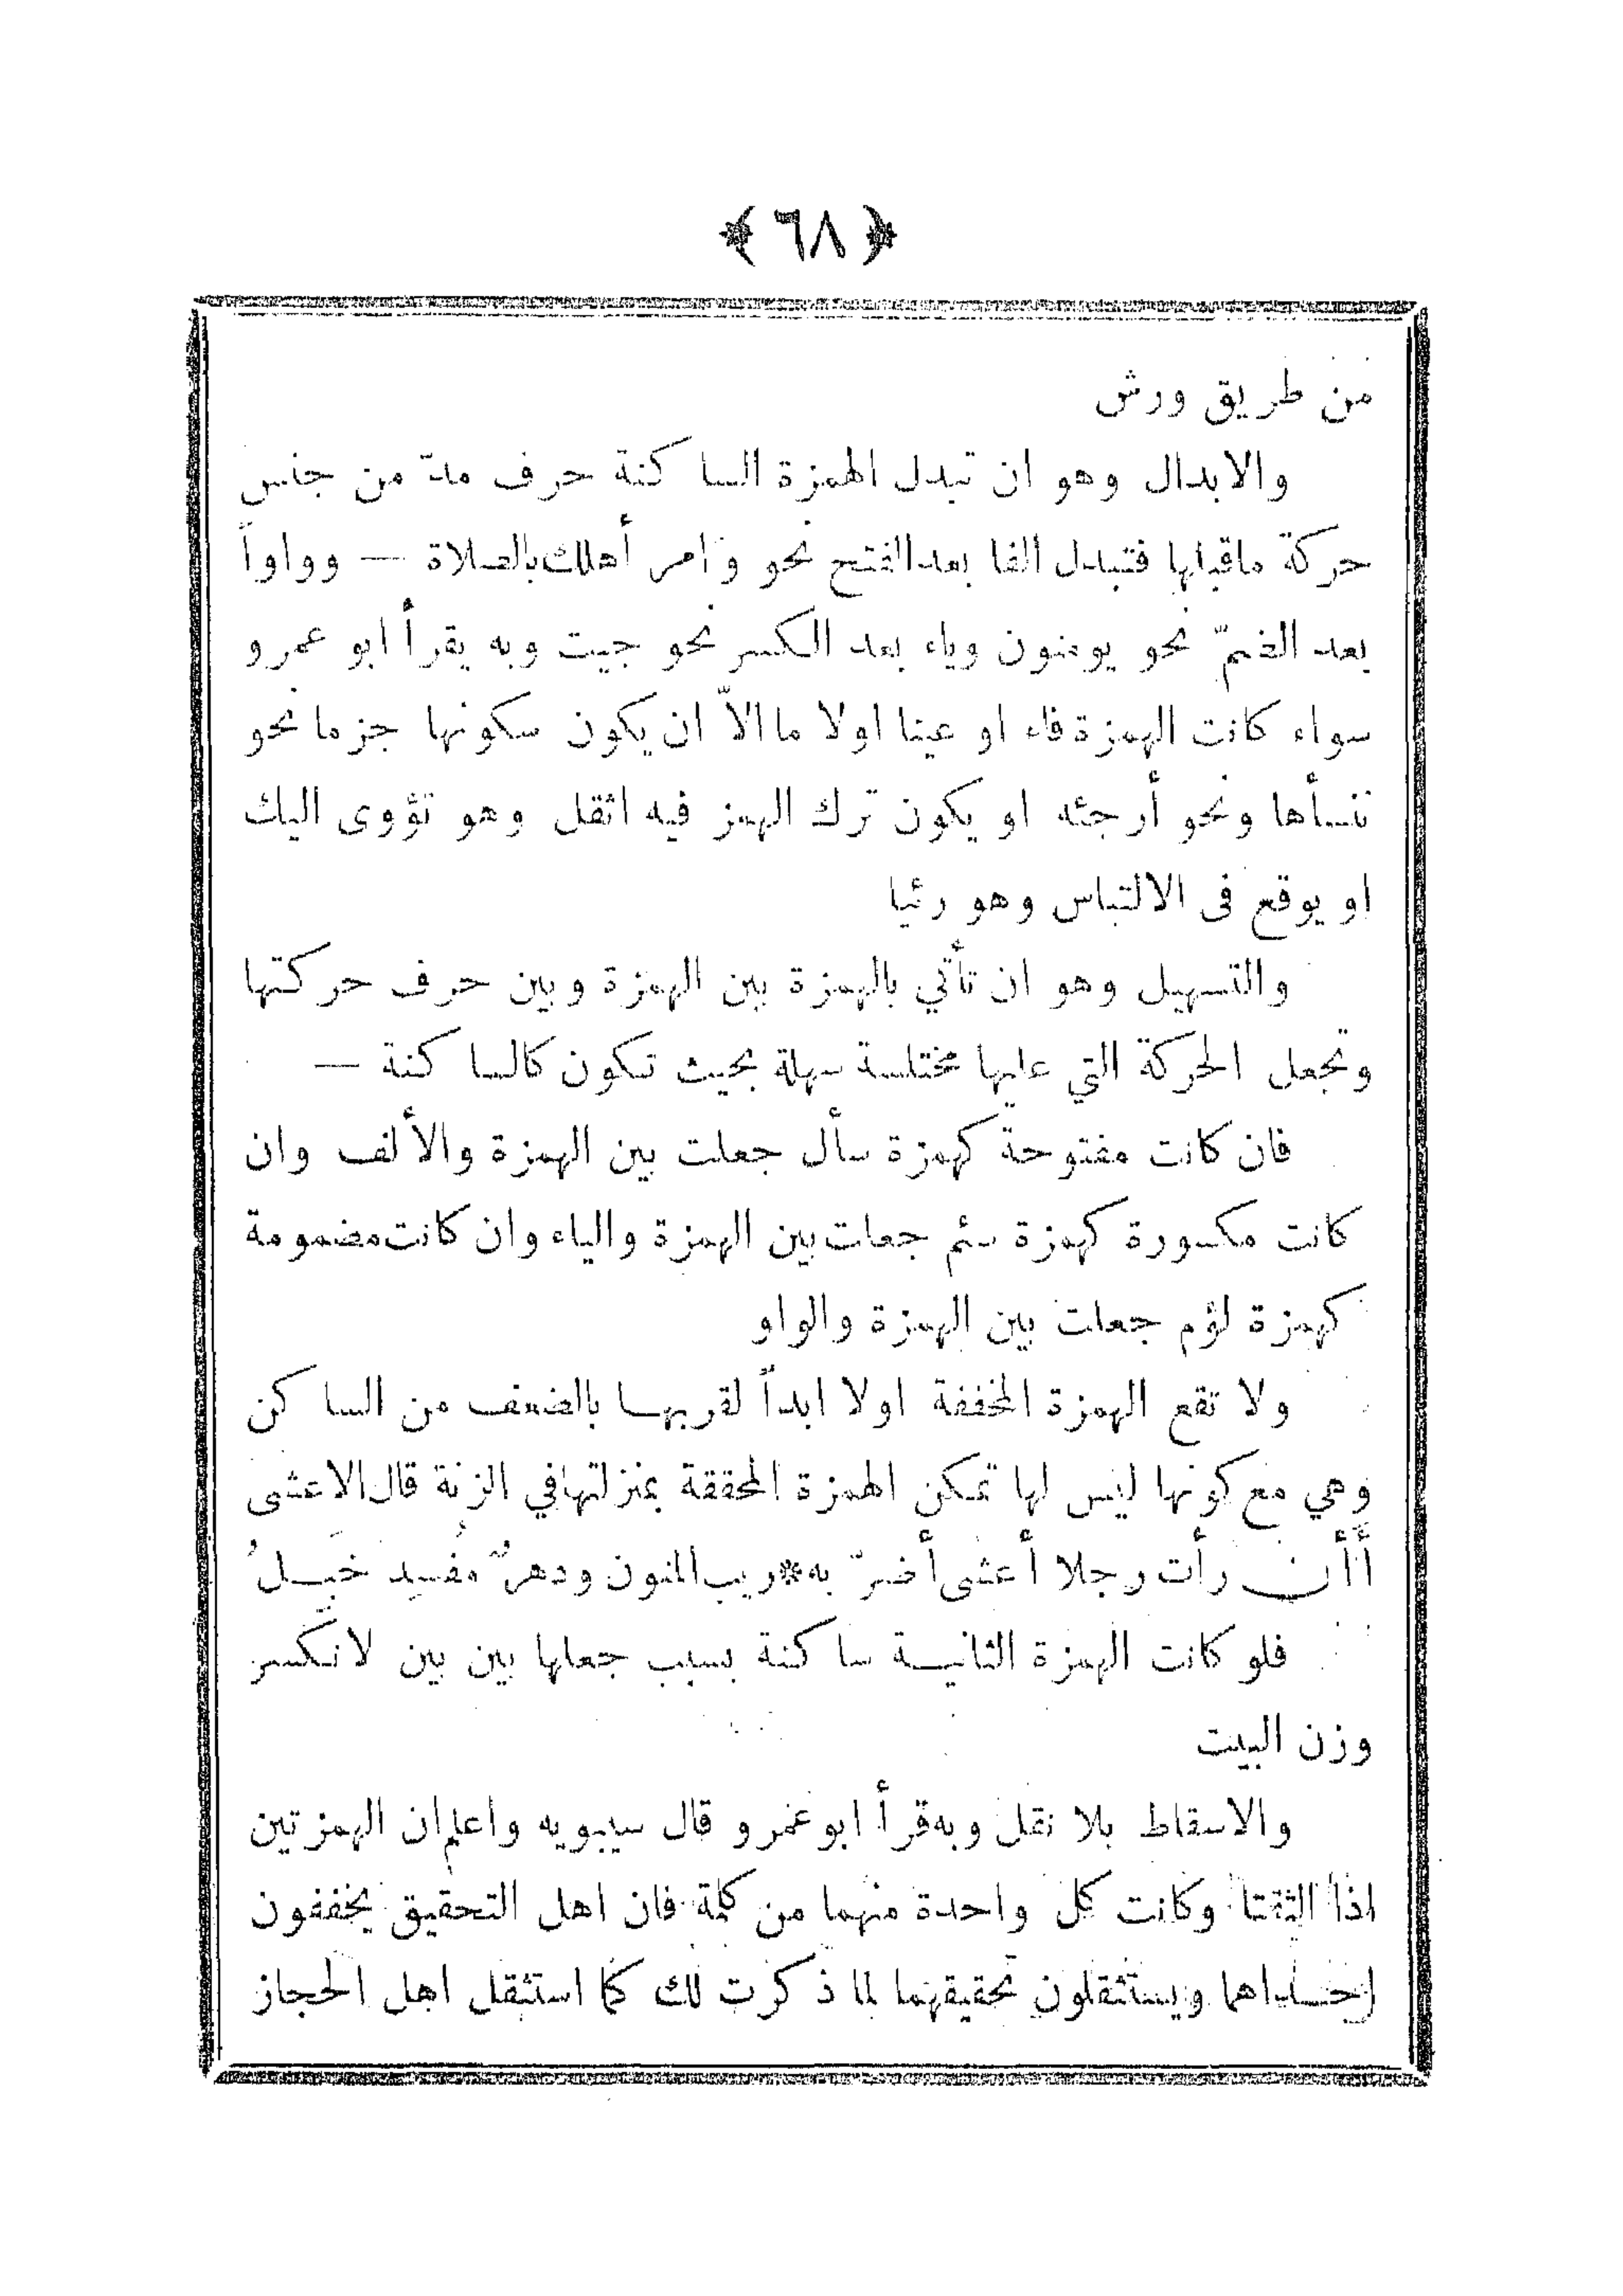 ﴿ ٦٨ ﴾
من طريق ورش
والابدال وهو ان تبدل الهمزة الساكنة حرف مدّ من جنس
حركة ماقبلها فتبدل الفا بعد الفتح نحو وامر أهلك بالصلاة — وواواً
بعد الضمّ نحو يومنون وياء بعد الكسر نحو جيت وبه يقرأ ابو عمرو
سواء كانت الهمزة فاء او عينا اولا ما الاّ ان يكون سكونها جزما نحو
ننسأها ونحو أرجئه او يكون ترك الهمز فيه اثقل وهو تؤوى اليك
او يوقع فى الالتباس وهو رئيا
والتسهيل وهو ان تأتي بالهمزة بين الهمزة وبين حرف حركتها
وتجعل الحركة التي عليها مختلسة سهلة بحيث تكون كالساكنة —
فان كانت مفتوحة كهمزة سأل جعلت بين الهمزة والألف وان
كانت مكسورة كهمزة سئم جعلت بين الهمزة والياء وان كانت مضمومة
كهمزة لؤم جعلت بين الهمزة والواو
ولا تقع الهمزة المخففة اولا ابداً لقربها بالضعف من الساكن
وهي مع كونها ليس لها تمكن الهمزة المحققة بمنزلتها في الزنة قال الاعشى
أأن رأت رجلا أعشى أضرّ به * ريب المنون ودهرٌ مُفسِد خَبِلُ
فلو كانت الهمزة الثانية ساكنة بسبب جعلها بين بين لانكسر
وزن البيت
والاسقاط بلا نقل وبه قرأ ابو عمرو قال سيبويه واعلم ان الهمزتين
اذا التقتا وكانت كل واحدة منهما من كلمة فان اهل التحقيق يخففون
احداهما ويستثقلون تحقيقهما لما ذكرت لك كما استثقل اهل الحجاز